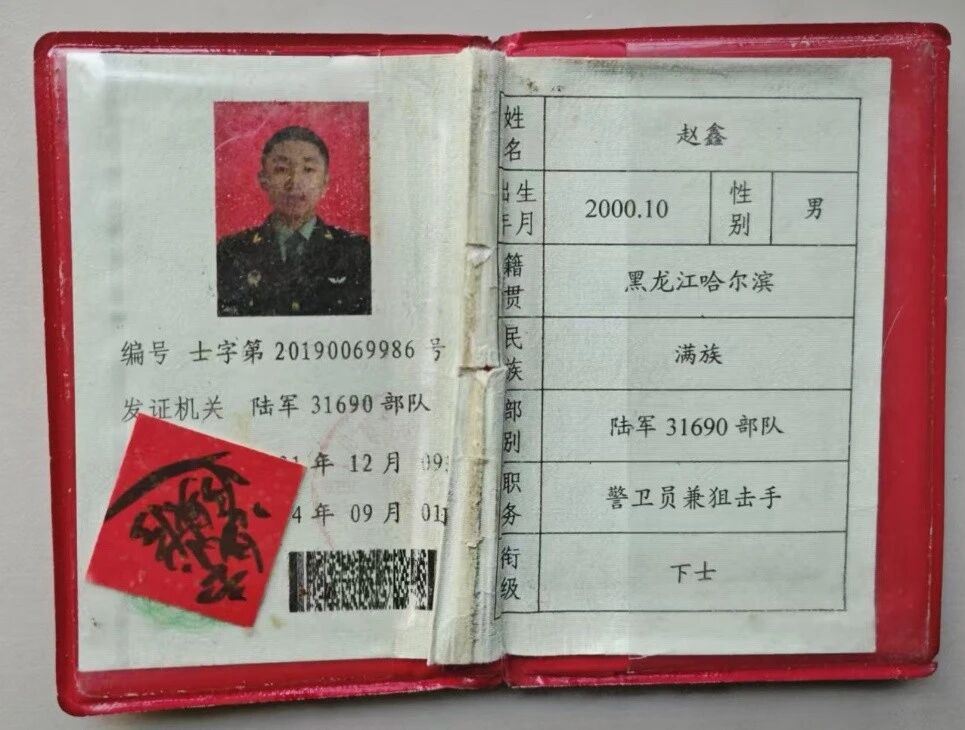 编号 士字第 20190069986 号
发证机关 陆军 31690 部队
年 12 月 09
4 年 09 月 01
姓名 赵鑫
出生年月 2000.10 性别 男
籍贯 黑龙江哈尔滨
民族 满族
部别 陆军 31690 部队
职务 警卫员兼狙击手
衔级 下士